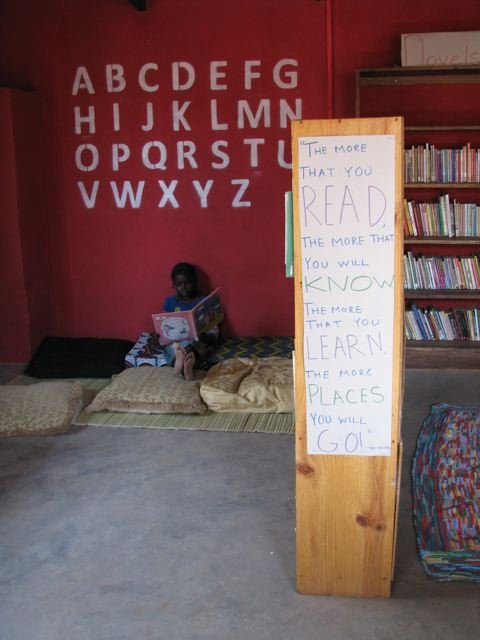 A B C D E F G
H I J K L M N
O P Q R S T U
V W X Y Z
Novels
"THE MORE
THAT YOU
READ,
THE MORE THAT
YOU WILL
KNOW
THE MORE
THAT YOU
LEARN,
THE MORE
PLACES
YOU WILL
GO!"